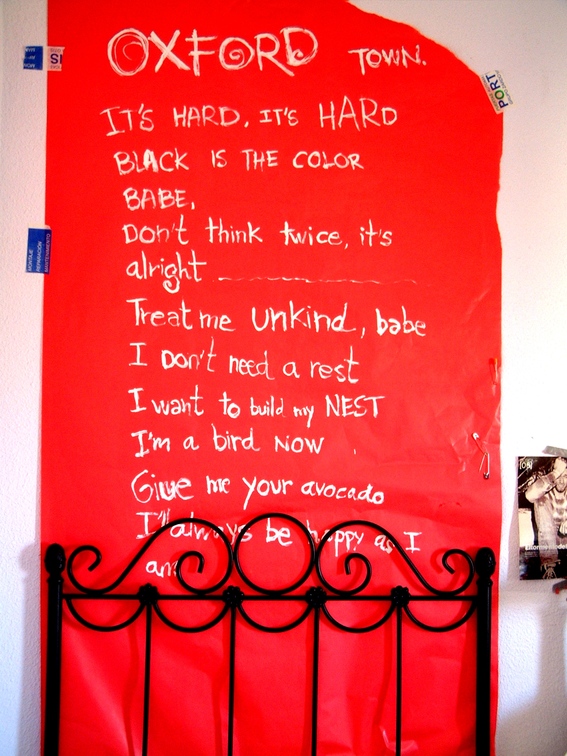 OXFORD TOWN.
IT'S HARD, IT'S HARD
BLACK IS THE COLOR
BABE,
DON't think twice, it's
alright
Treat me UNKIND, babe
I DON't need a rest
I want to build my NEST
I'm a bird NOW
Give me your avocado
I'll always be happy as I
am
PORT
MONTAJE
REPARACIÓN
MANTENIMIENTO